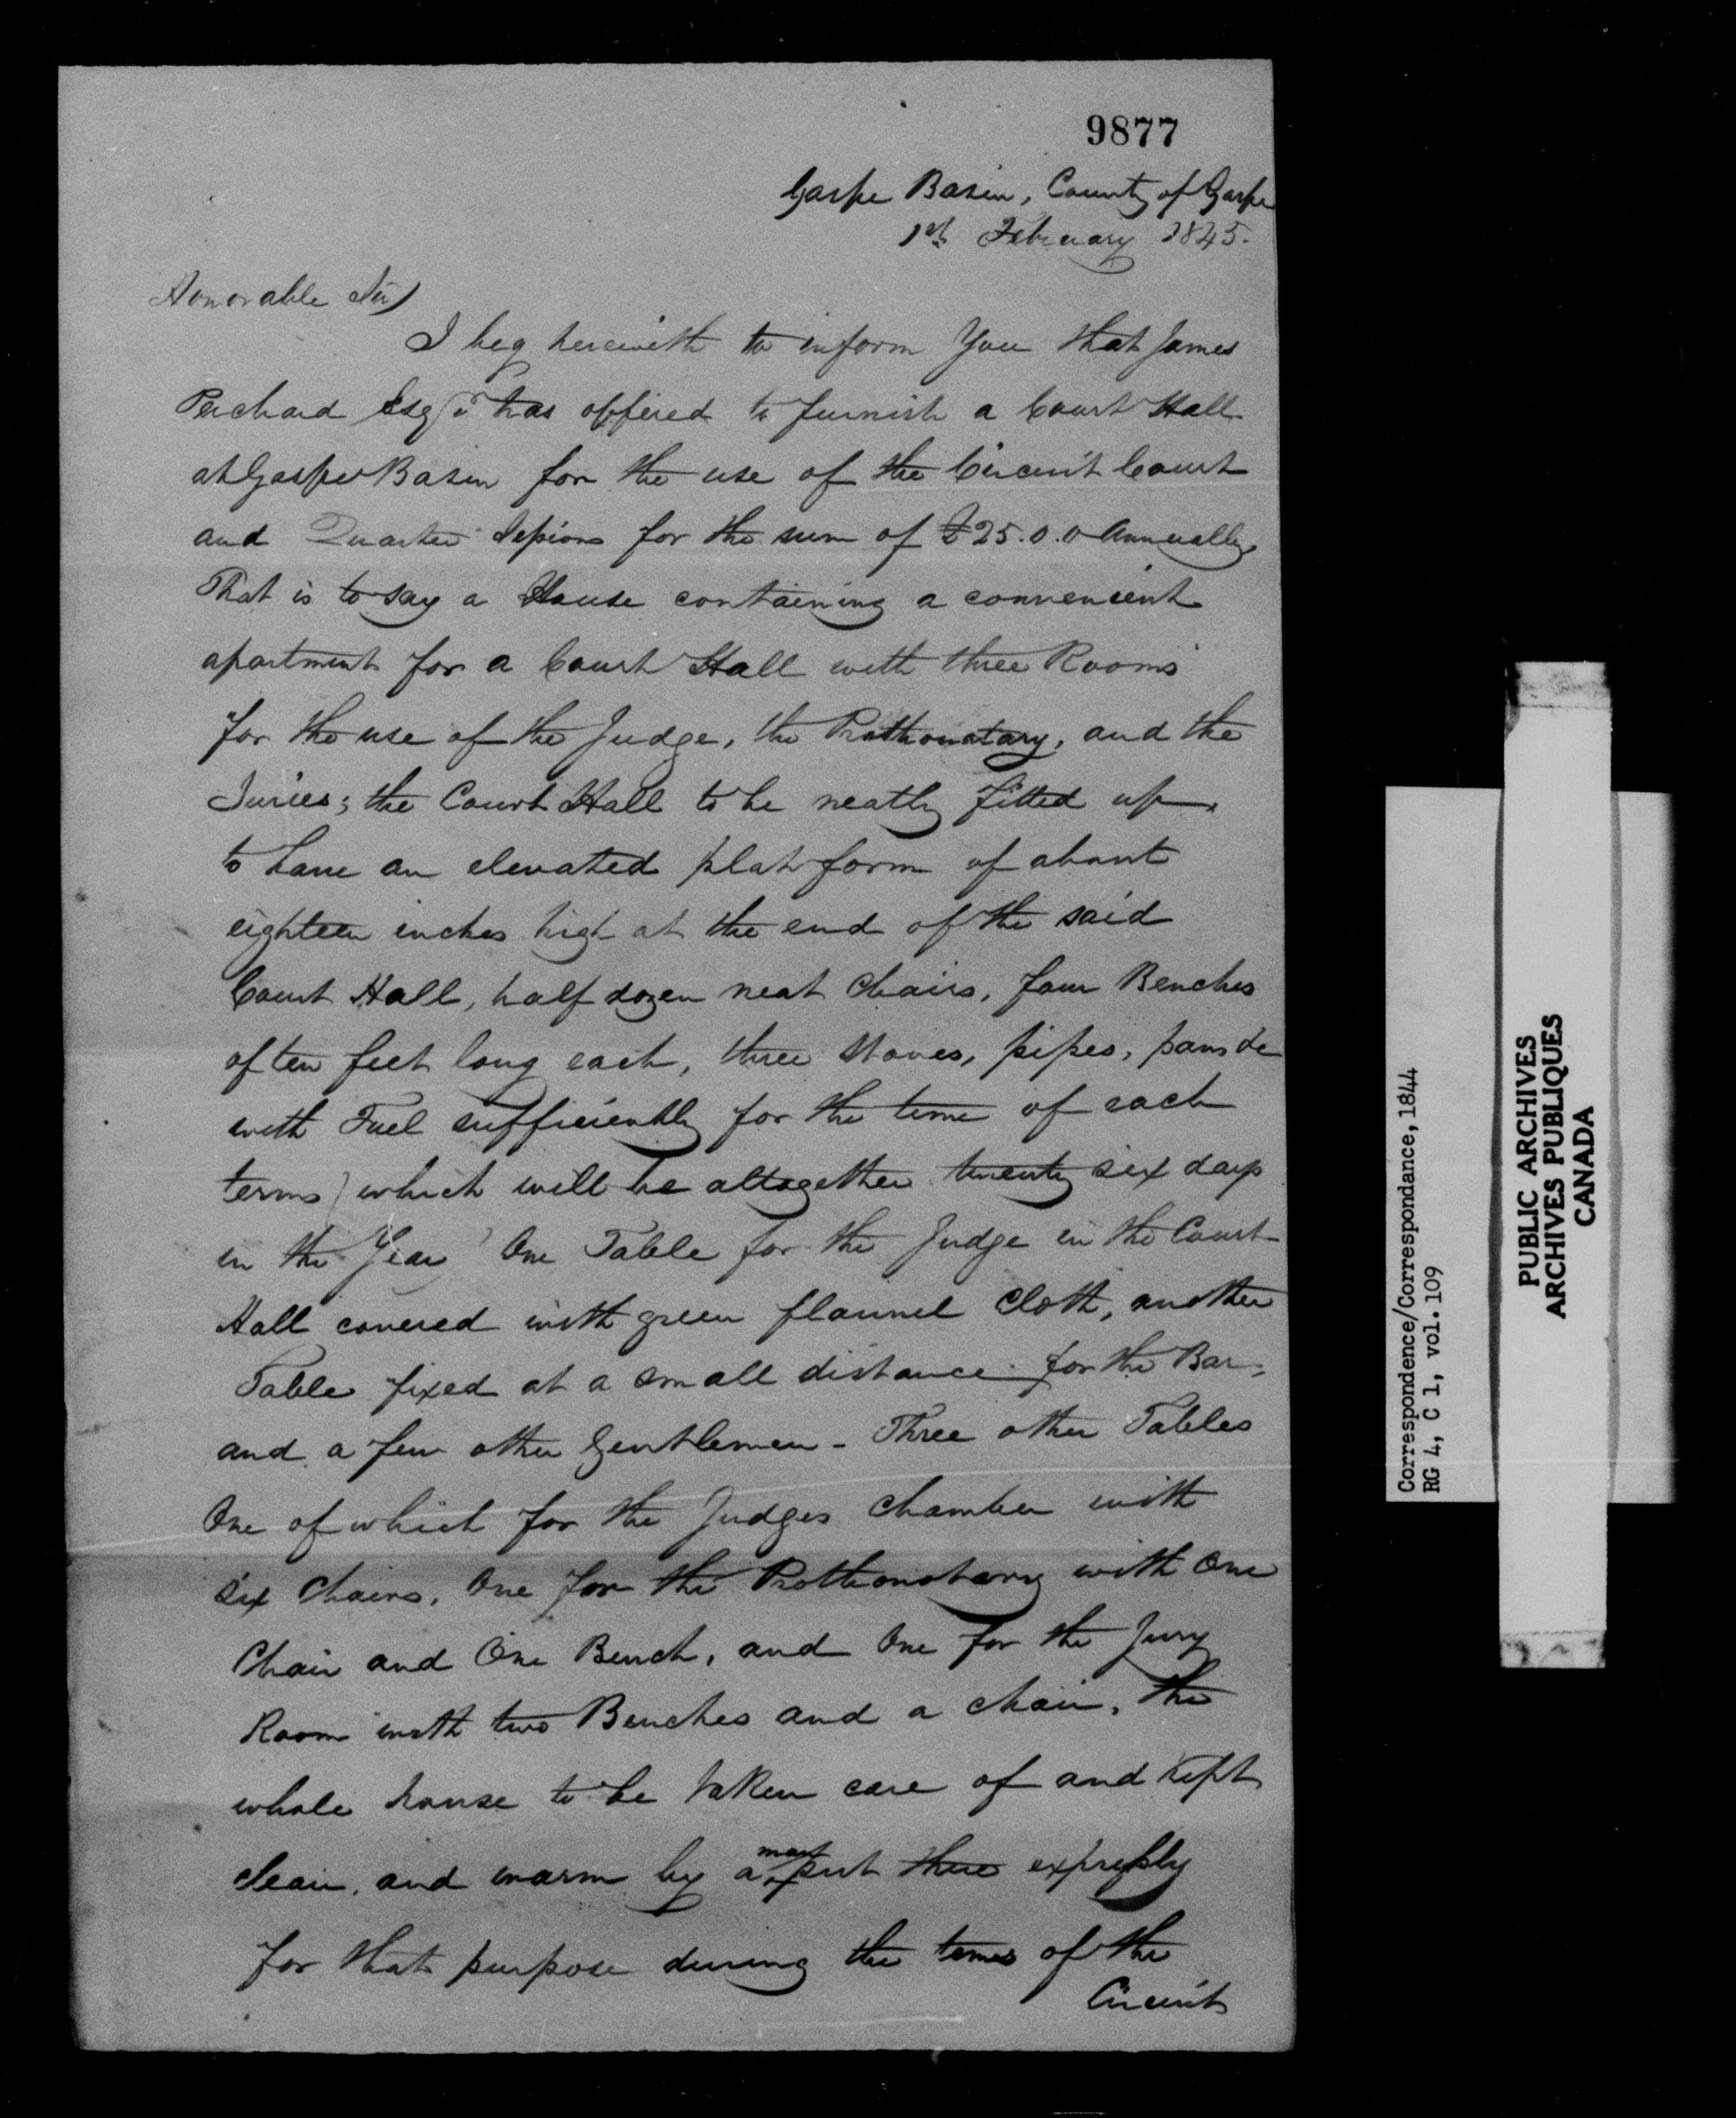 9877
Gaspe Basin, County of Gaspe
1st February 1845.
Honorable Sir,
I beg herewith to inform You that James
Perchard Esqr. has offered to furnish a Court Hall
at Gaspe Basin for the use of the Circuit Court
and Quarter Sessions for the sum of £25.0.0 Annually,
That is to say a House containing a convenient
apartment for a Court Hall with three Rooms
for the use of the Judge, the Prothonotary, and the
Juries; the Court Hall to be neatly fitted up,
to have an elevated platform of about
eighteen inches high at the end of the said
Court Hall, half dozen neat Chairs, four Benches
of ten feet long each, three stoves, pipes, pans &c
with Fuel sufficiently for the time of each
terms (which will be altogether twenty six days
in the Year) One Table for the Judge in the Court
Hall covered with green flannel Cloth, another
Table fixed at a small distance for the Bar,
and a few other Gentlemen - Three other Tables
One of which for the Judges Chamber with
six Chairs, One for the Prothonotary with One
Chair and One Bench, and One for the Jury
Room with two Benches and a chair, the
whole house to be taken care of and kept
clean, and warm by a man put there expressly
for that purpose during the terms of the
Circuit
Correspondence/Correspondance, 1844
RG 4, C 1, vol. 109
PUBLIC ARCHIVES
ARCHIVES PUBLIQUES
CANADA